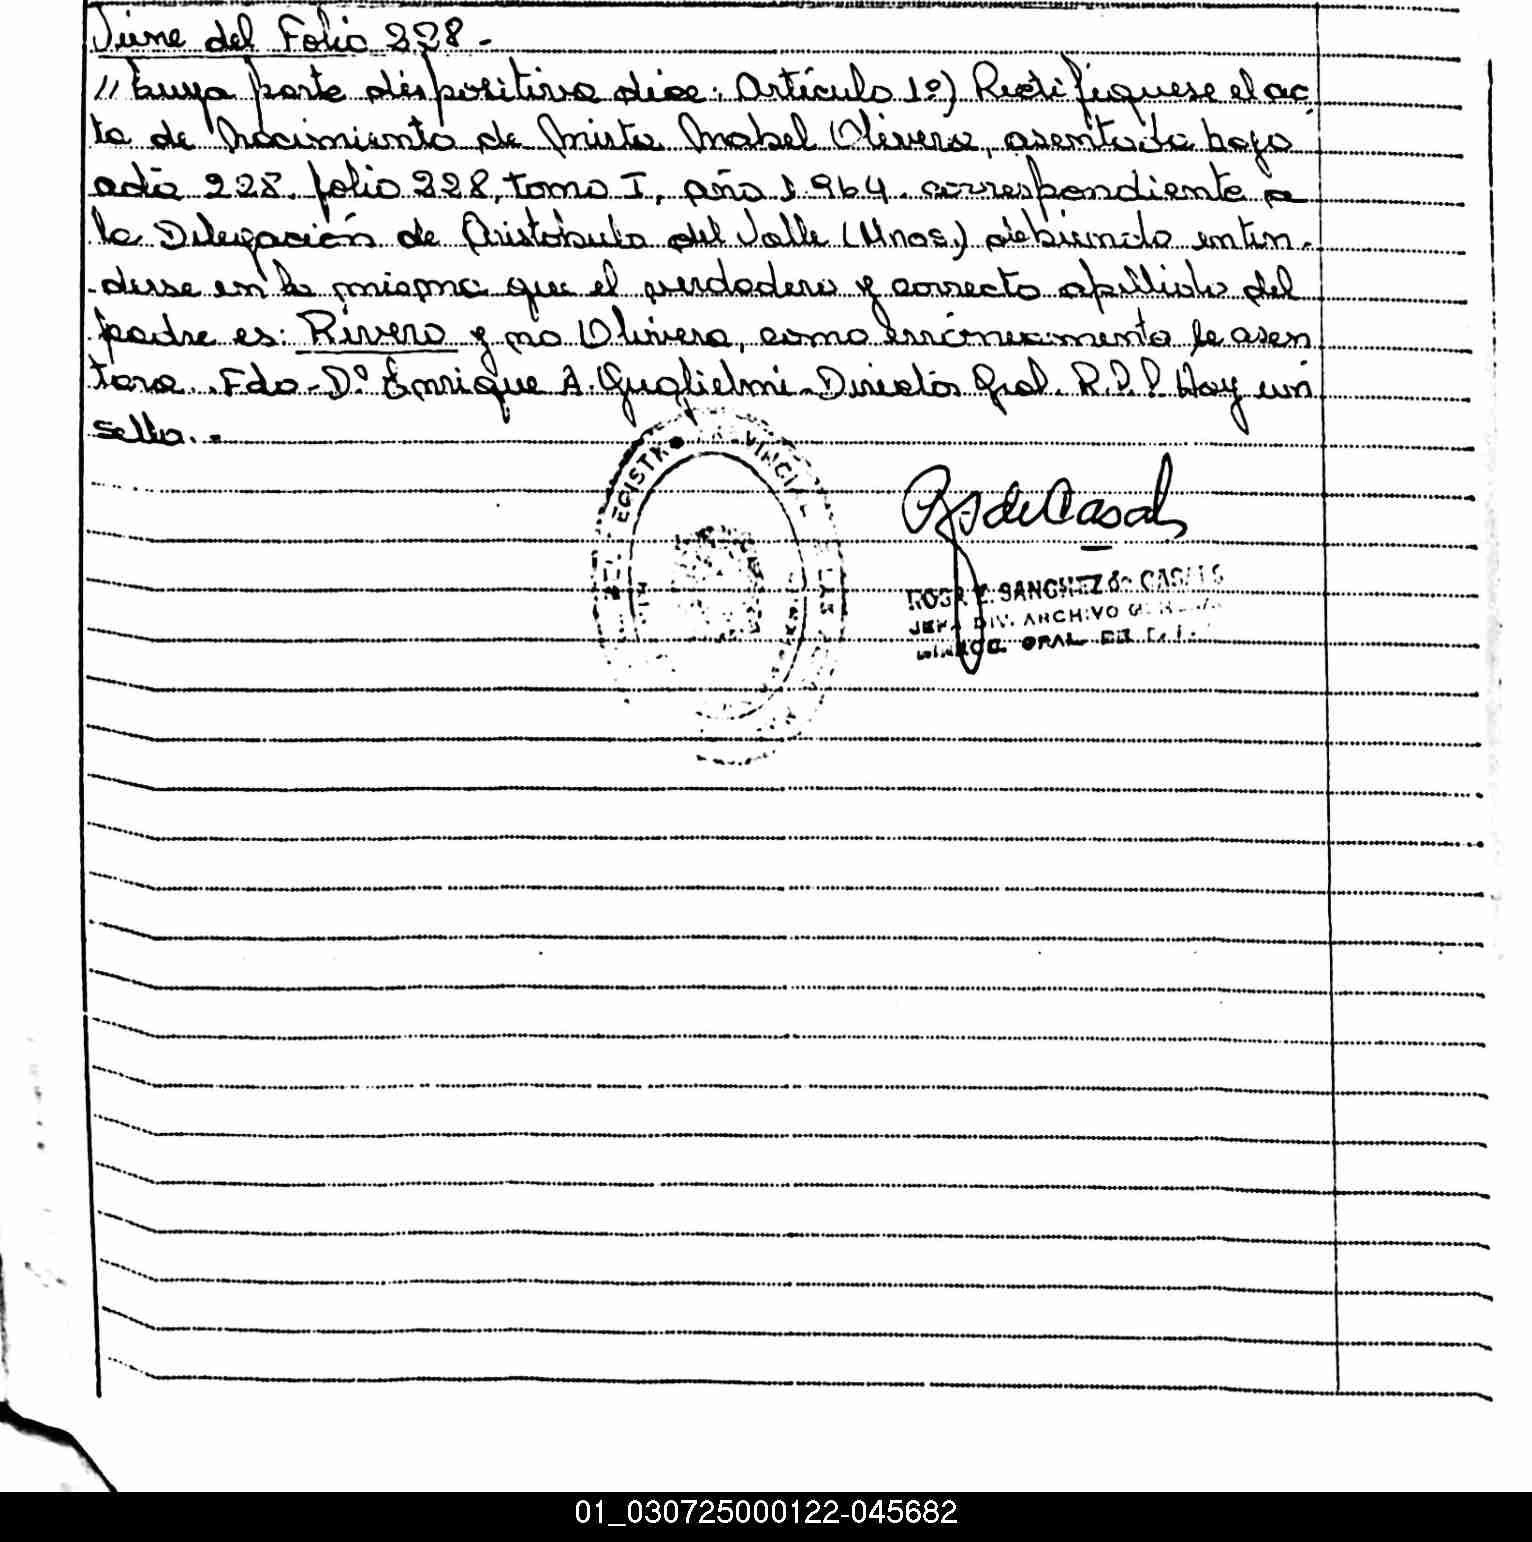 Viene del Folio 228.-
// cuya parte dispositiva dice: Artículo 1º) Rectifíquese el ac
ta de Nacimiento de Mirta Mabel Olivera, asentada bajo
acta 228, folio 228, tomo I, año 1.964. correspondiente a
la Delegación de Aristóbulo del Valle (Mnes.) debiendo enten-
derse en la misma que el verdadero y correcto apellido del
padre es: Rivero y no Olivera, como erróneamente se asen
tara. Fdo-Dº Enrique A. Guglielmi-Director Gral. R.P.P. Hay un
sello.-
REGISTRO PROVINCIAL
ROSA E. SANCHEZ de CASALS
JEFA DIV. ARCHIVO GENERAL
GRAL.
01_030725000122-045682